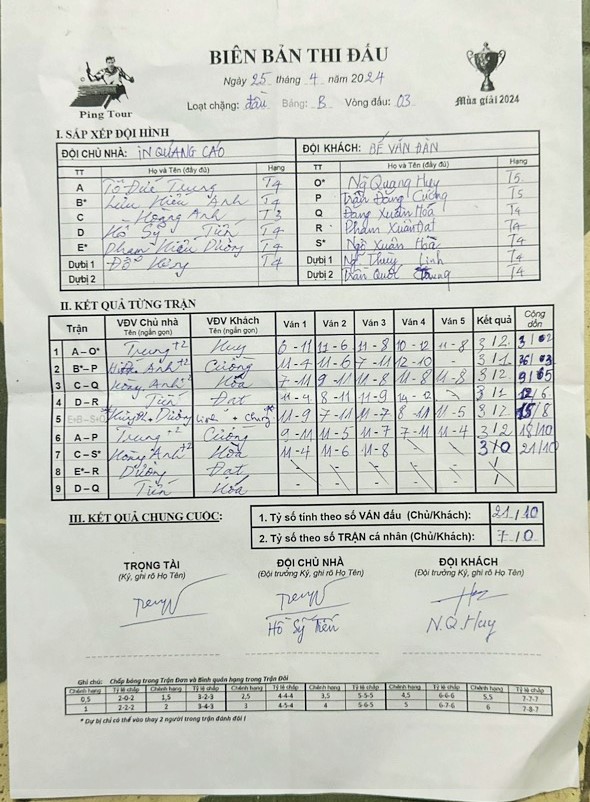 BIÊN BẢN THI ĐẤU
Ngày 25 tháng 4 năm 2024
Ping Tour
Loại chặng: đầu Bảng: B Vòng đấu: 03
Mùa giải 2024
I. SẮP XẾP ĐỘI HÌNH
ĐỘI CHỦ NHÀ: IN QUẢNG CÁO ĐỘI KHÁCH: ĐẾ VĂN ĐÀN
TT Họ và Tên (đầy đủ) Hạng TT Họ và Tên (đầy đủ) Hạng
A Tô Đức Trung T4 O* Ng Quang Huy T5
B* Lưu Hiếu Anh T4 P Trần Đăng Cường T5
C Hoàng Anh T3 Q Đặng Xuân Hoà T4
D Hồ Sỹ Tiến T4 R Phạm Xuân Đạt T4
E* Phạm Dương T4 S* Ngô Xuân Hoà T4
Dự bị 1 Đỗ Hùng T4 Dự bị 1 Ng Thùy Linh T4
Dự bị 2 Dự bị 2 Trần Quốc T4
II. KẾT QUẢ TỪNG TRẬN
Trận VĐV Chủ nhà Tên (ngắn gọn) VĐV Khách Tên (ngắn gọn) Ván 1 Ván 2 Ván 3 Ván 4 Ván 5 Kết quả Cộng dồn
1 A – O* Trung+2 Huy 6-11 11-6 11-8 10-12 11-8 3/2 3/02
2 B* – P Anh+2 Cường 11-4 11-6 7-11 12-10 - 3/1 /03
3 C – Q Hoàng Anh+2 Hoà 7-11 9-11 11-8 11-8 11-8 3/2 9/05
4 D – R Tiến Đạt 11-4 8-11 11-9 14-12 - 3/1 12/6
5 + Dương Linh + Chung 11-9 7-11 11-7 8-11 11-5 3/2 15/8
6 A – P Trung+2 Cường 9-11 11-5 11-7 7-11 11-4 3/2 18/10
7 C – S* Hoàng Anh+2 Hoà 11-4 11-6 11-8 - - 3/0 21/10
8 E* – R Dương Đạt - - - - - /
9 D – Q Tiến Hoà - - - - - /
III. KẾT QUẢ CHUNG CUỘC:
1. Tỷ số tính theo số VÁN đấu (Chủ/Khách): 21/10
2. Tỷ số theo số TRẬN cá nhân (Chủ/Khách): 7/0
TRỌNG TÀI ĐỘI CHỦ NHÀ ĐỘI KHÁCH
(Ký, ghi rõ Họ Tên) (Đội trưởng Ký, ghi rõ Họ Tên) (Đội trưởng Ký, ghi rõ Họ Tên)
Hồ Sỹ Tiến N.Q.Huy
Ghi chú: Chấp bóng trong Trận Đơn và Bình quân hạng trong Trận Đôi
Chênh hạng Tỷ lệ chấp Chênh hạng Tỷ lệ chấp Chênh hạng Tỷ lệ chấp Chênh hạng Tỷ lệ chấp Chênh hạng Tỷ lệ chấp Chênh hạng Tỷ lệ chấp
0,5 2-0-2 1,5 3-2-3 2,5 4-4-4 3,5 5-5-5 4,5 6-6-6 5,5 7-7-7
1 2-2-2 2 3-4-3 3 4-5-4 4 5-6-5 5 6-7-6 6 7-8-7
* Dự bị chỉ có thể vào thay 2 người trong trận đánh đôi !